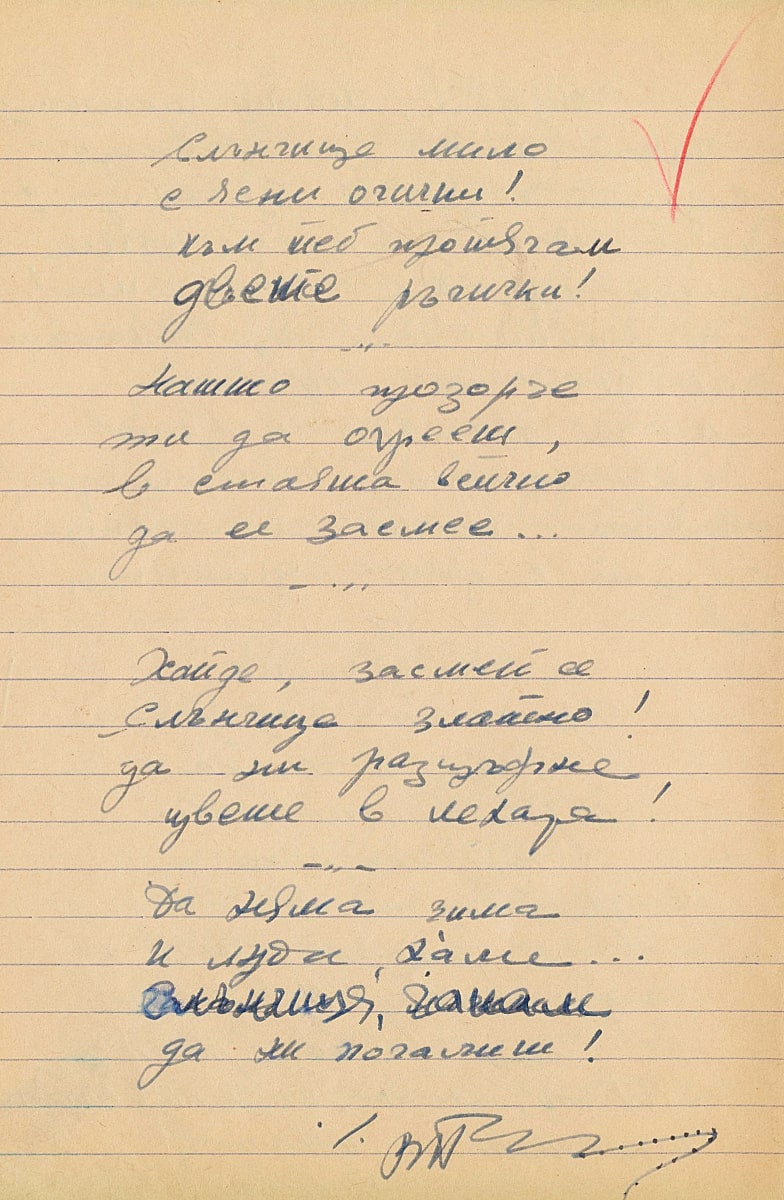 Слънчице мило
с ясни очички!
към теб протягам
двете ръчички!
— „ —
Нашто прозорче
ти да огрееш,
в стаята всичко
да се засмее...
— „ —
Хайде, засмей се
Слънчице златно!
да ни разцъфне
цвете в лехата!
— „ —
Да няма зима
и луди хали...
Слънчице, чакам
да ни погалиш!